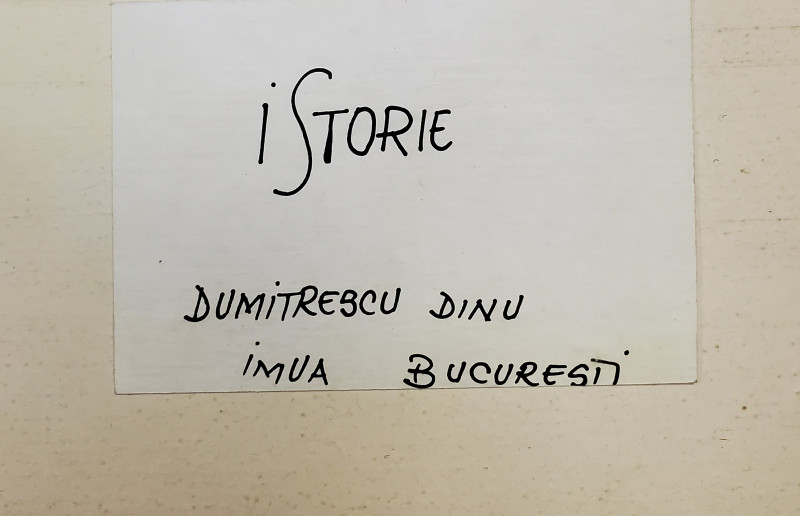 iSTORIE
DUMiTRESCU DINU
iMUA BUCURESTi